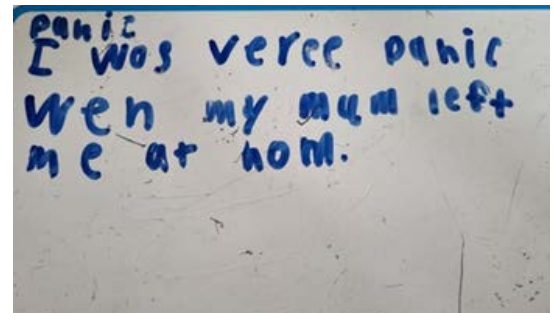 panic
I wos veree panic
wen my mum left
me at hom.